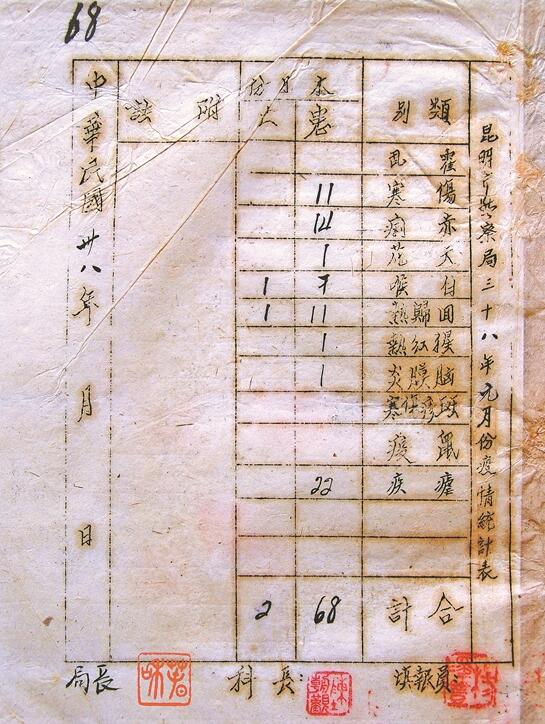 68
昆明市警察局三十八年元月份疫情統計表
類別 本月份 附註
患
霍乱
傷寒 11
赤痢 14
天花 1
白喉 7 1
回歸熱 11 1
猩紅熱 1
脑膜炎 1
斑疹傷寒
鼠疫
瘧疾 22
合計 68 2
中華民國卅八年 月 日
填報員:
科長:
局長